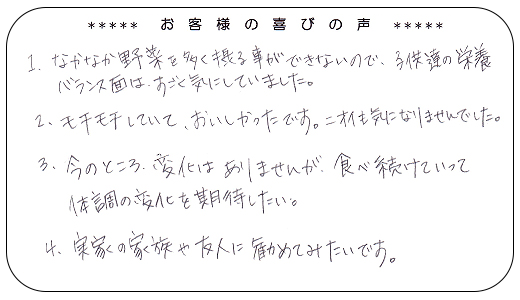 ***** お客様の喜びの声 *****
1. なかなか野菜を多く摂る事ができないので、子供達の栄養
バランス面は、すごく気にしていました。
2. モチモチしていて、おいしかったです。ニオイも気になりませんでした。
3. 今のところ、変化はありませんが、食べ続けていって
体調の変化を期待したい。
4. 実家の家族や友人に勧めてみたいです。